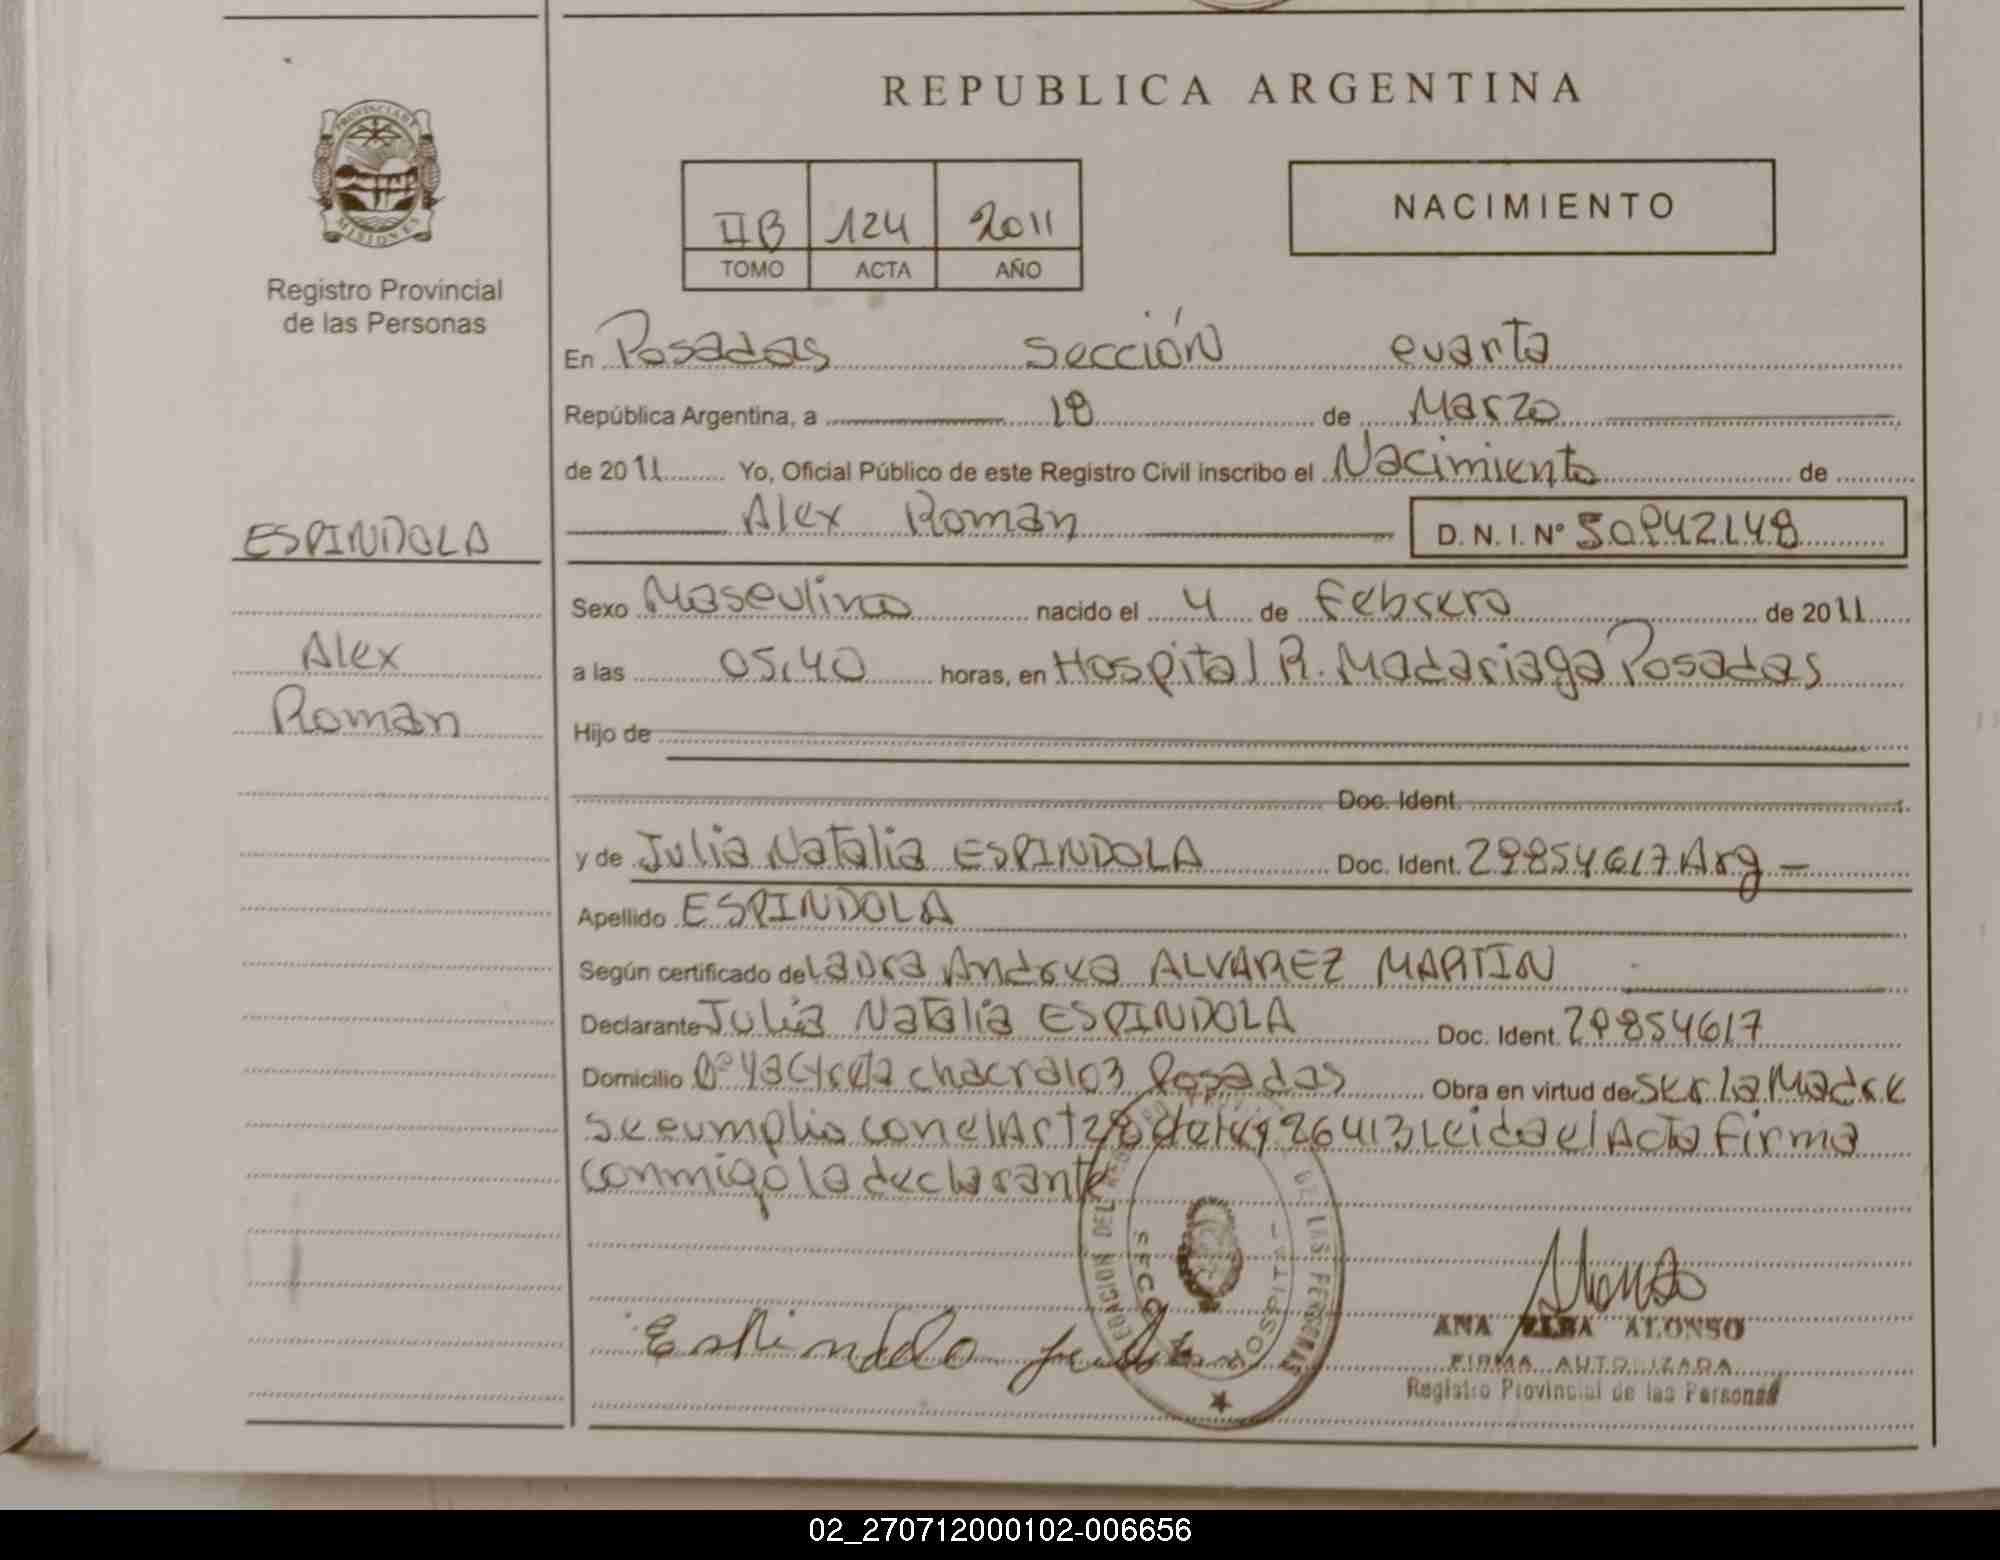 REPUBLICA ARGENTINA
PROVINCIA DE
MISIONES
Registro Provincial
de las Personas
IIB 124 2011
TOMO ACTA AÑO
NACIMIENTO
En Posadas Sección cuarta
República Argentina, a 18 de Marzo
de 2011 Yo, Oficial Público de este Registro Civil inscribo el Nacimiento de
Alex Roman D.N.I. Nº 50942148
ESPINDOLA
Alex
Roman
Sexo Masculino nacido el 4 de Febrero de 2011
a las 05.40 horas, en Hospital R. Madariaga Posadas
Hijo de
Doc. Ident.
y de Julia Natalia ESPINDOLA Doc. Ident. 29854617 Arg
Apellido ESPINDOLA
Según certificado de Laura Andrea ALVAREZ MARTIN
Declarante Julia Natalia ESPINDOLA Doc. Ident. 29854617
Domicilio Bº Yacyreta chacra 103 Posadas Obra en virtud de Ser la Madre
se cumplio con el Art 28 de ley 26413 Leida el Acta Firma
conmigo la declarante
DE LAS PERSONAS
Espindola Julia
Alonso
ANA ALONSO
FIRMA AUTORIZADA
Registro Provincial de las Personas
02_270712000102-006656